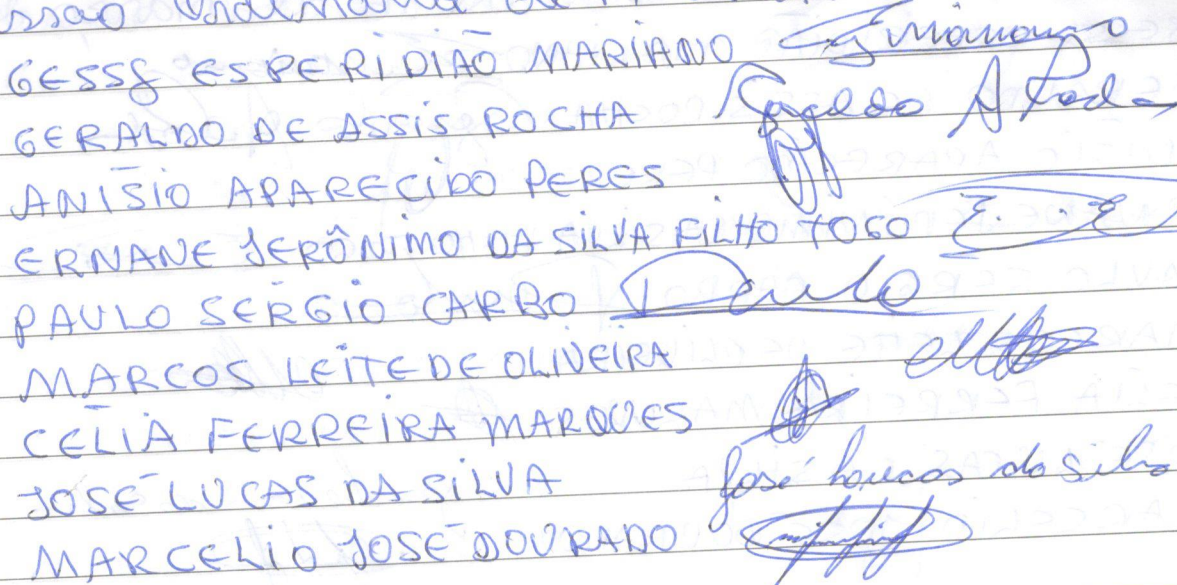 GESSY ESPERIDIÃO MARIANO
GERALDO DE ASSIS ROCHA
ANÍSIO APARECIDO PERES
ERNANE JERÔNIMO DA SILVA FILHO TOGO
PAULO SÉRGIO CARBO Paulo
MARCOS LEITE DE OLIVEIRA
CÉLIA FERREIRA MARQUES
JOSÉ LUCAS DA SILVA José Loucas da Silva
MARCELIO JOSÉ DOURADO